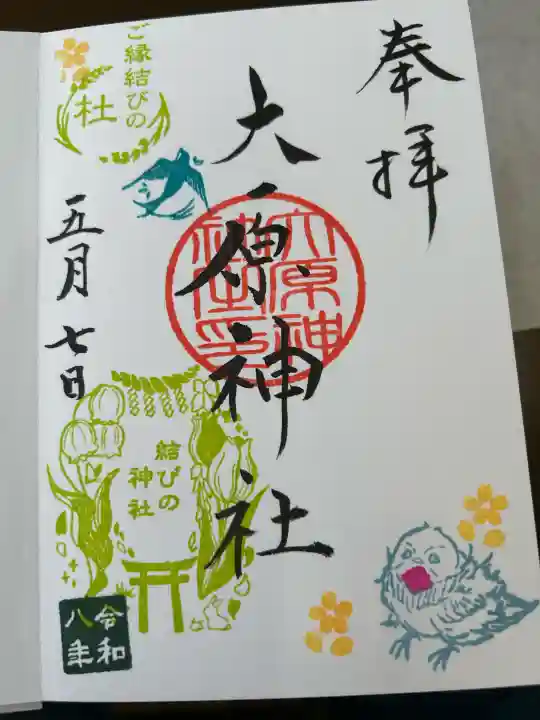 奉拝
大原神社
大原神
社之印
ご縁結びの
杜
五月七日
結びの
神社
令和
八年